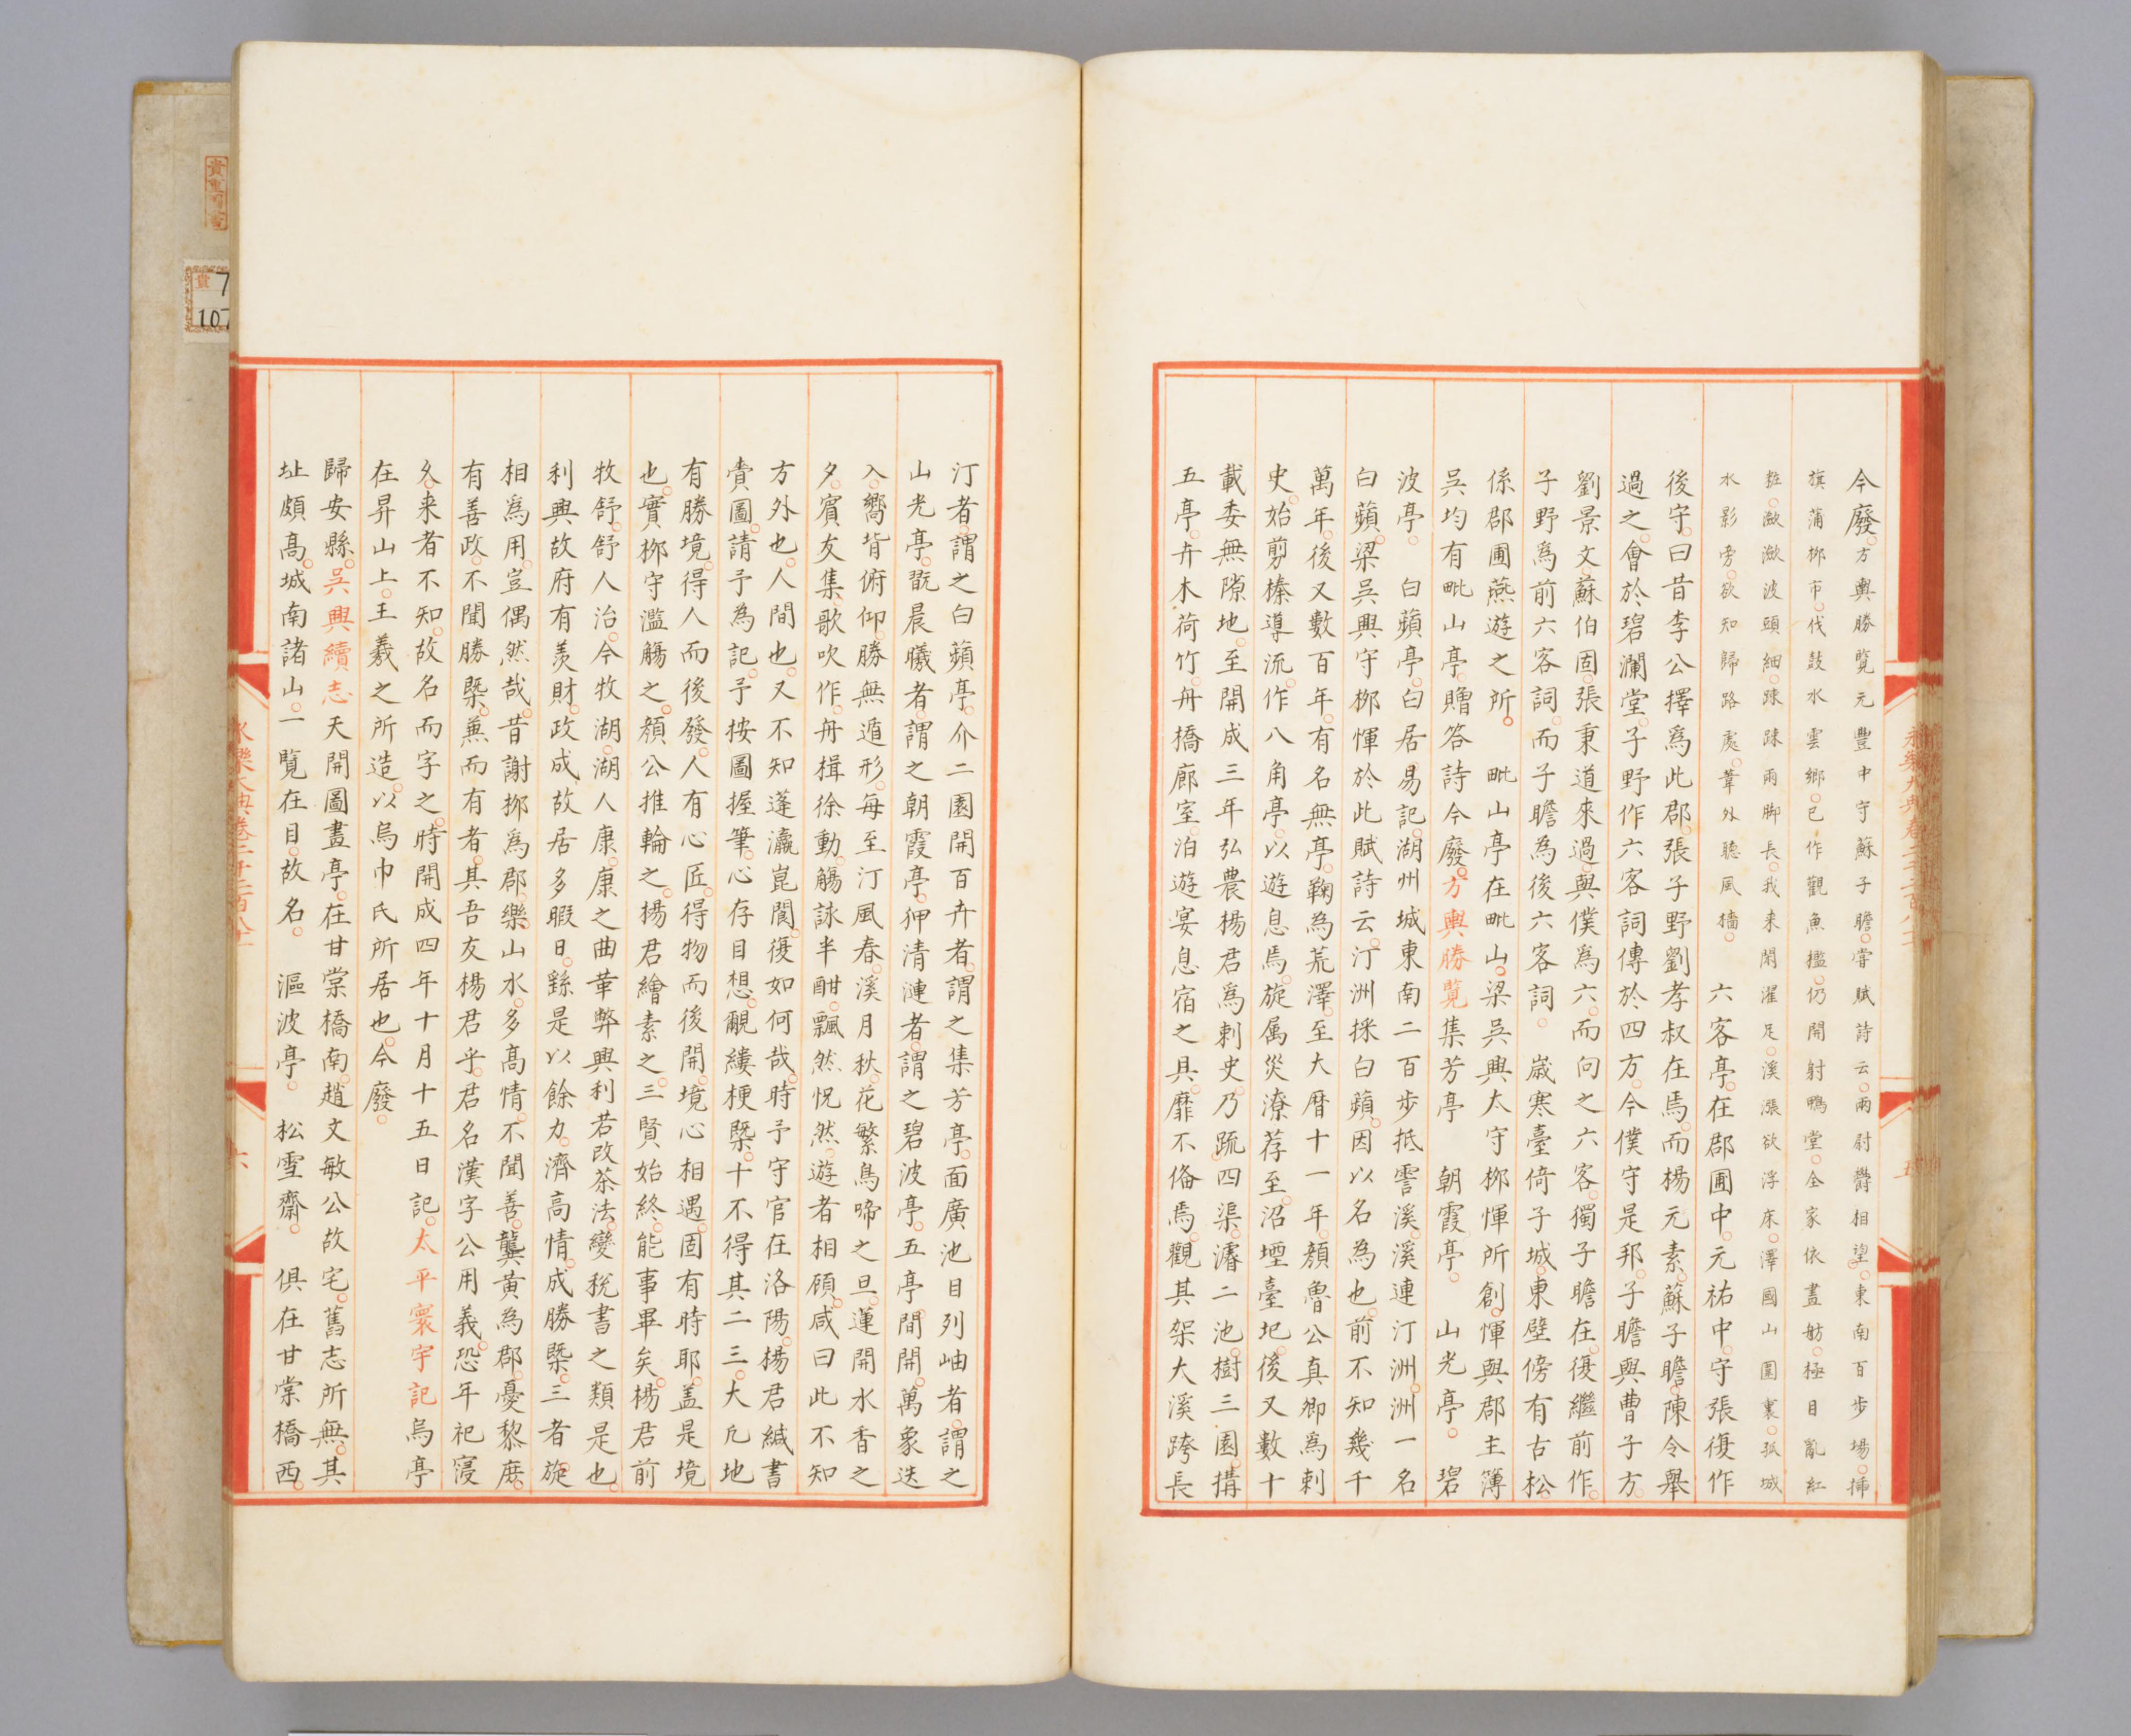 今廢。方輿勝覽元豐中守蘇子瞻。嘗賦詩云。兩尉鬱相望。東南百步場。插
旗蒲柳市。伐鼓水雲鄉。已作觀魚檻。仍開射鴨堂。全家依畫舫。極目亂紅
粧。瀲瀲波頭細。疎疎雨脚長。我來閑濯足。溪漲欲浮床。澤國山圍裏。孤城
水影旁。欲知歸路處。葦外聽風檣。　六客亭。在郡圃中。元祐中。守張復作
後守。曰昔李公擇爲此郡。張子野劉孝叔在焉。而楊元素。蘇子瞻。陳令舉
過之。會於碧瀾堂。子野作六客詞傳於四方。今僕守是邦。子瞻與曹子方。
劉景文。蘇伯固。張秉道來過。與僕爲六。而向之六客。獨子瞻在。復繼前作。
子野爲前六客詞。而子瞻為後六客詞。　歲寒臺倚子城。東壁傍有古松。
係郡圃燕遊之所。　毗山亭在毗山。梁吳興太守柳惲所創。惲與郡主簿
吳均有毗山亭。贈答詩今廢。方輿勝覽集芳亭　朝霞亭。　山光亭。　碧
波亭。　白蘋亭。白居易記。湖州城東南二百步抵霅溪。溪連汀洲。洲一名
白蘋。梁吳興守柳惲於此賦詩云。汀洲採白蘋。因以名為也。前不知幾千
萬年。後又數百年。有名無亭。鞠為荒澤。至大曆十一年。顏魯公真卿爲刺
史。始剪榛導流。作八角亭。以遊息焉。旋属災潦荐至。沼堙臺圮。後又數十
載委無隙地。至開成三年弘農楊君爲刺史。乃疏四渠。濬二池。樹三園。搆
五亭。卉木荷竹。舟橋廊室。泊遊宴息宿之具。靡不俻焉。觀其架大溪跨長
汀者。謂之白蘋亭。介二園開百卉者。謂之集芳亭。面廣池目列岫者。謂之
山光亭。翫晨曦者。謂之朝霞亭。狎清漣者。謂之碧波亭。五亭間開。萬象迭
入。嚮背俯仰。勝無遁形。每至汀風春。溪月秋。花繁鳥啼之旦。蓮開水香之
夕。賓友集。歌吹作。舟楫徐動。觴詠半酣。飄然怳然。遊者相顧。咸曰此不知
方外也。人間也。又不知蓬瀛崑閬。復如何哉。時予守官在洛陽。楊君緘書
賫圖。請予為記。予按圖握筆。心存目想。覼縷梗槩。十不得其二三。大凡地
有勝境。得人而後發。人有心匠。得物而後開。境心相遇。固有時耶。盖是境
也。實柳守濫觴之。顏公推輪之。楊君繪素之。三賢始終。能事畢矣。楊君前
牧舒。舒人治。今牧湖。湖人康。康之曲革弊興利若改茶法。變稅書之類是也。
利興故府有羡財。政成故居多暇日。繇是以餘力。濟高情。成勝槩。三者旋
相爲用。豈偶然哉。昔謝柳爲郡。樂山水。多高情。不聞善。龔黃為郡。憂黎庶。
有善政。不聞勝槩。兼而有者。其吾友楊君乎。君名漢字公用義。恐年祀寖
久。來者不知。故名而字之。時開成四年十月十五日記。太平寰宇記烏亭
在昇山上。王羲之所造。以烏巾氏所居也。今廢。
歸安縣。吳興續志天開圖畫亭。在甘棠橋南。趙文敏公故宅。舊志所無。其
址頗高。城南諸山。一覽在目。故名。　漚波亭。　松雪齋。　俱在甘棠橋西。
永樂大典卷二千二百八十一
六
貴
7
107